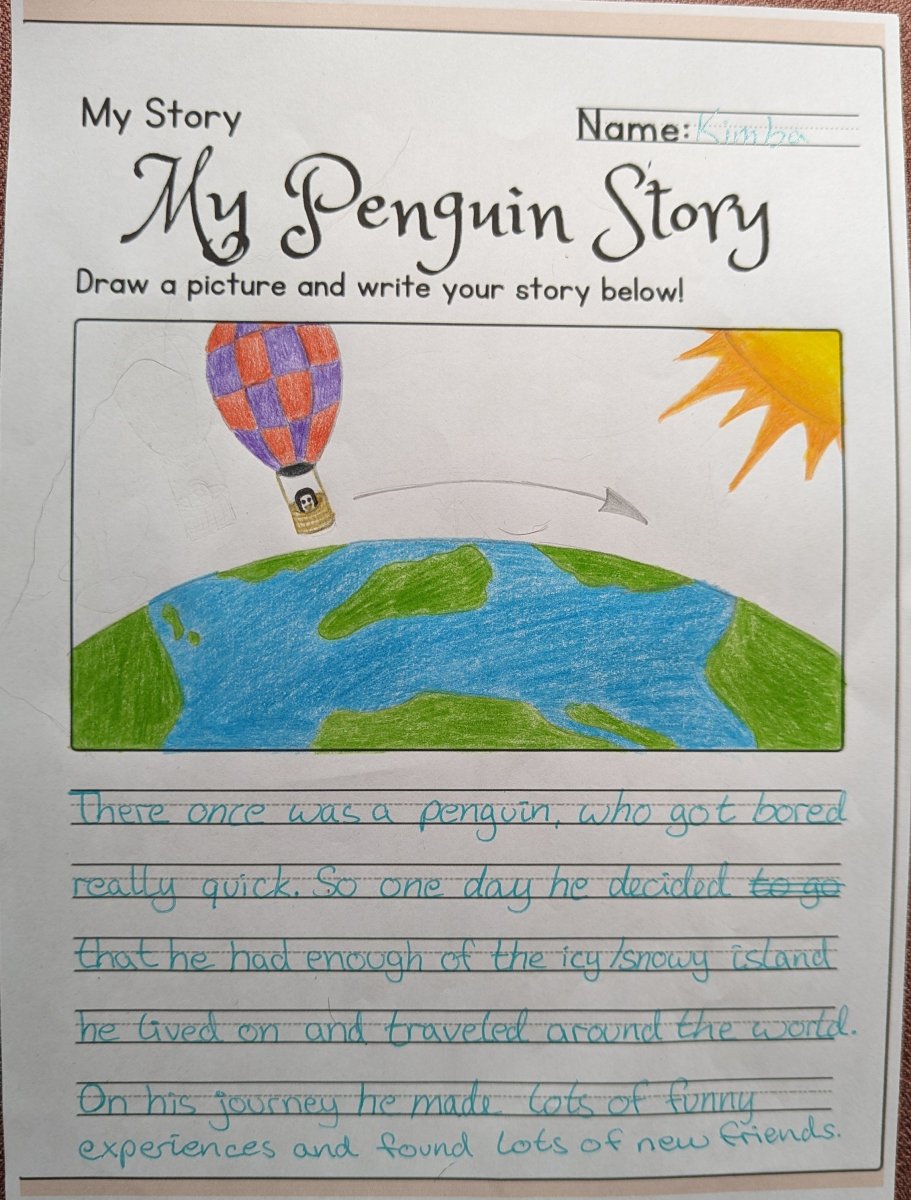 My Story
Name: Kimba
My Penguin Story
Draw a picture and write your story below!
There once was a penguin, who got bored
really quick. So one day he decided to go
that he had enough of the icy/snowy island
he lived on and traveled around the world.
On his journey he made lots of funny
experiences and found lots of new friends.